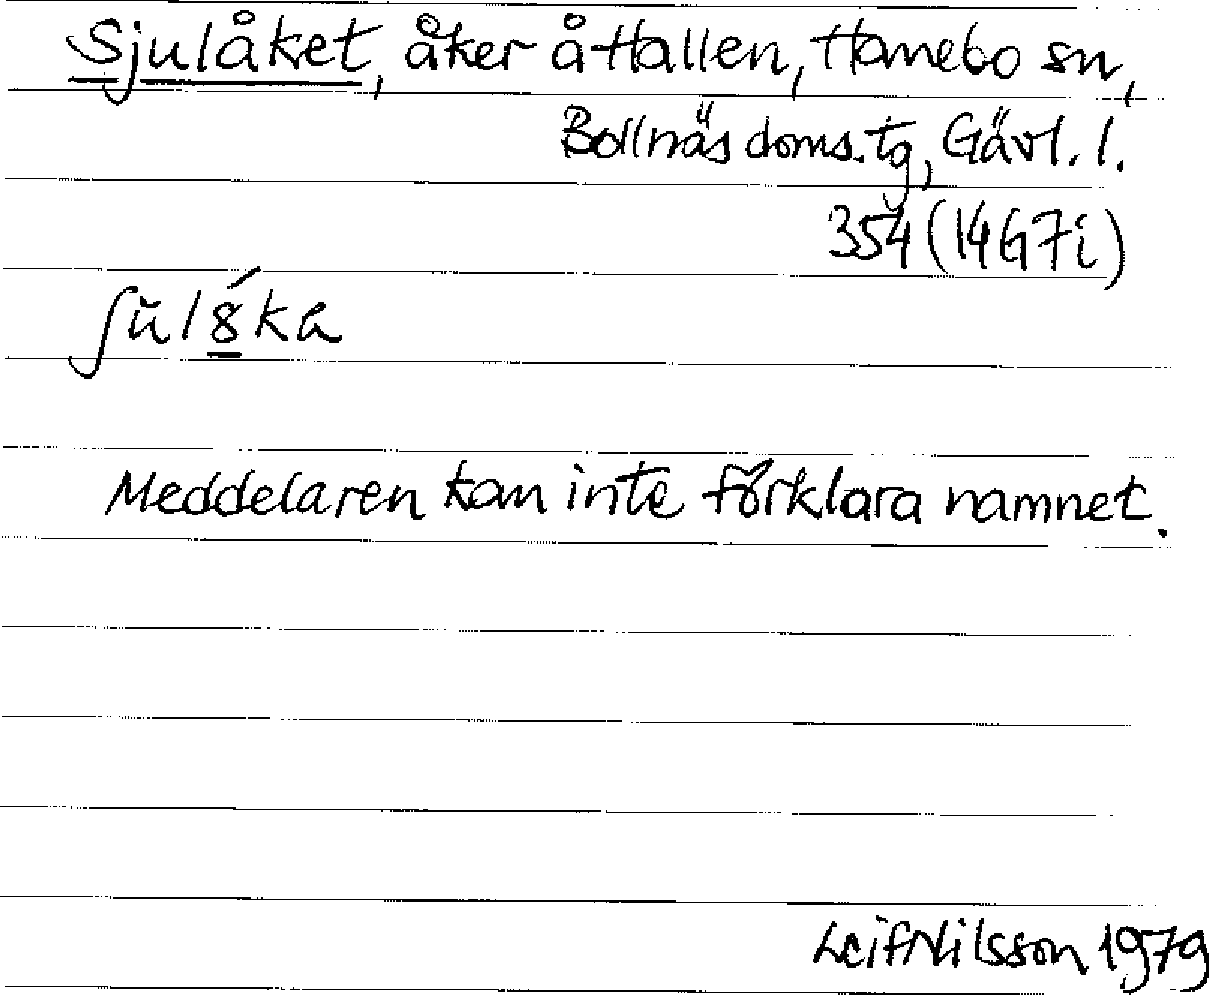 Sjulåket, åker å Hallen, Hanebo sn,
Bollnäs doms. tg, Gävl. l.
354 (14G7i)
Meddelaren kan inte förklara namnet.
Leif Nilsson 1979